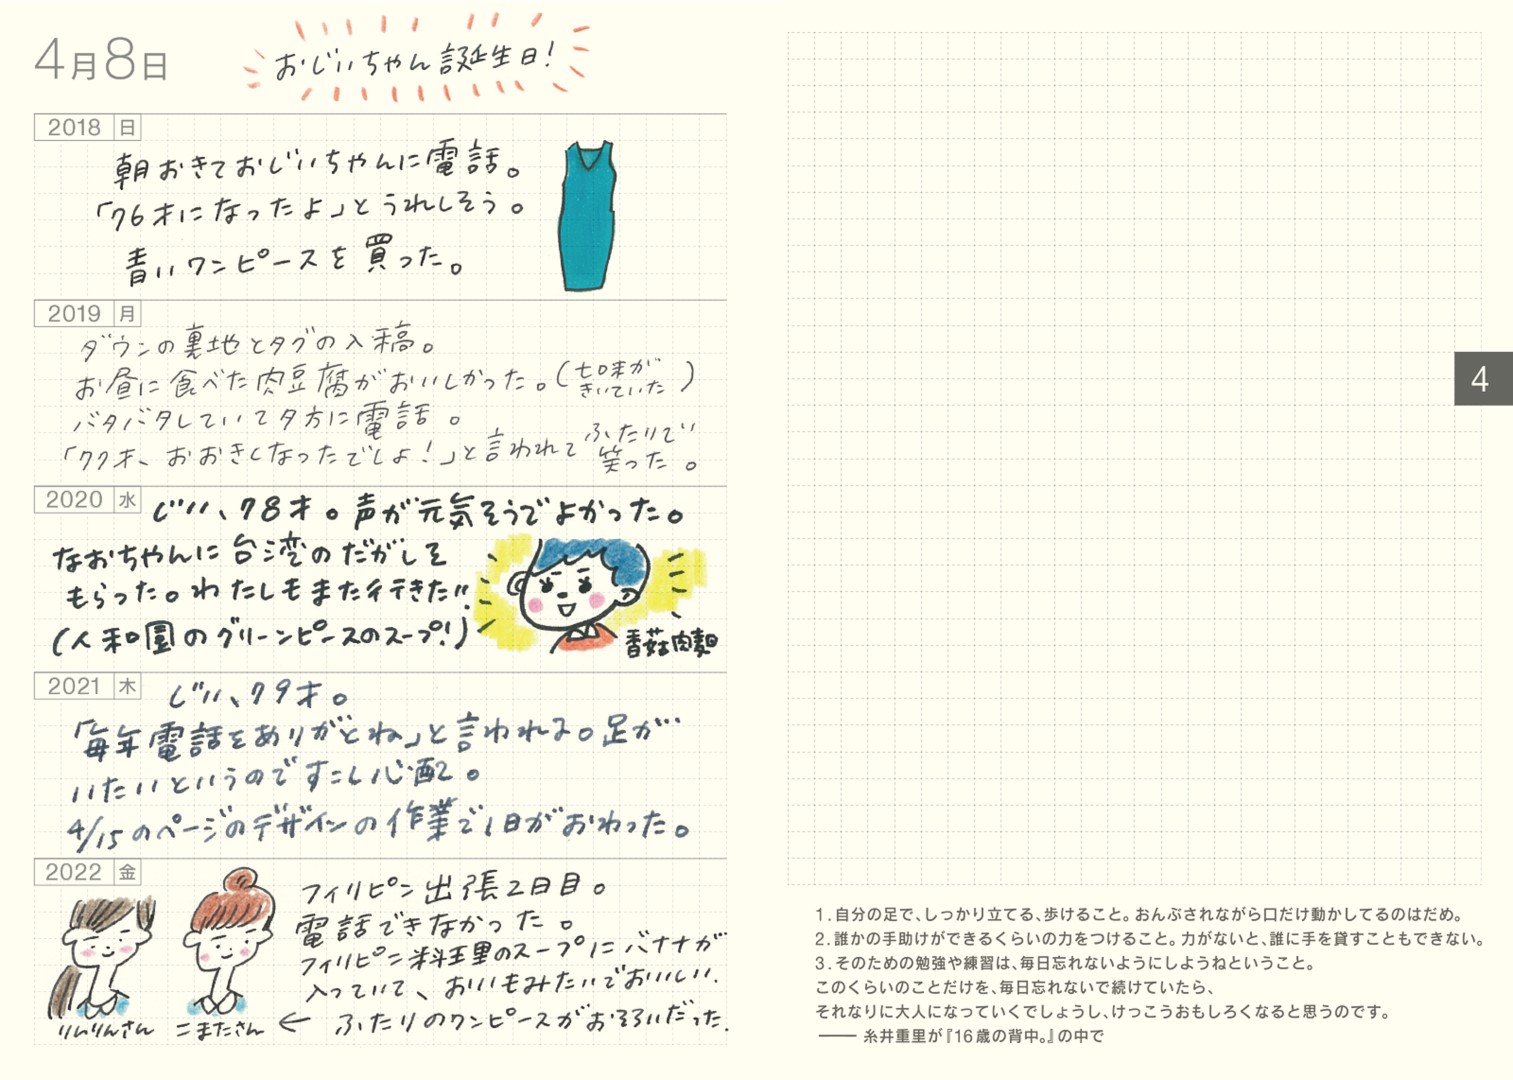 4月8日
おじいちゃん誕生日!
2018 日
朝おきておじいちゃんに電話。
「76才になったよ」とうれしそう。
青いワンピースを買った。
2019 月
ダウンの裏地とタグの入稿。
お昼に食べた肉豆腐がおいしかった。(七味がきいていた)
バタバタしていて夕方に電話。
「77才、おおきくなったでしょ!」と言われてふたりで笑った。
2020 水
じいい、78才。声が元気そうでよかった。
なおちゃんに台湾のだがしを
もらった。わたしもまた行きたい!!
(人和園のグリーンピースのスープ!)
香菇肉麺
2021 木
じいい、79才。
「毎年電話をありがとね」と言われる。足が
いたいというのですこし心配。
4/15のページのデザインの作業で1日がおわった。
2022 金
フィリピン出張2日目。
電話できなかった。
フィリピン料理のスープにバナナが
入っていて、おいもみたいでおいしい。
りんりんさん こまたさん ← ふたりのワンピースがおそろいだった。
4
1.自分の足で、しっかり立てる、歩けること。おんぶされながら口だけ動かしてるのはだめ。
2.誰かの手助けができるくらいの力をつけること。力がないと、誰に手を貸すこともできない。
3.そのための勉強や練習は、毎日忘れないようにしようねということ。
このくらいのことだけを、毎日忘れないで続けていたら、
それなりに大人になっていくでしょうし、けっこうおもしろくなると思うのです。
── 糸井重里が『16歳の背中。』の中で